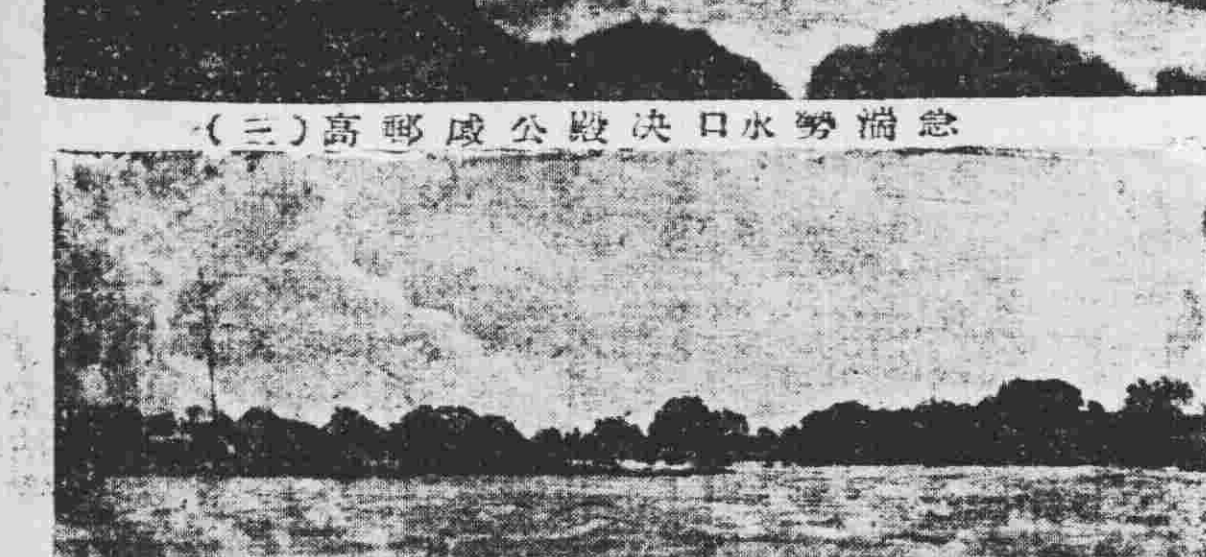 (三)高郵
公殿决口水勢湍急